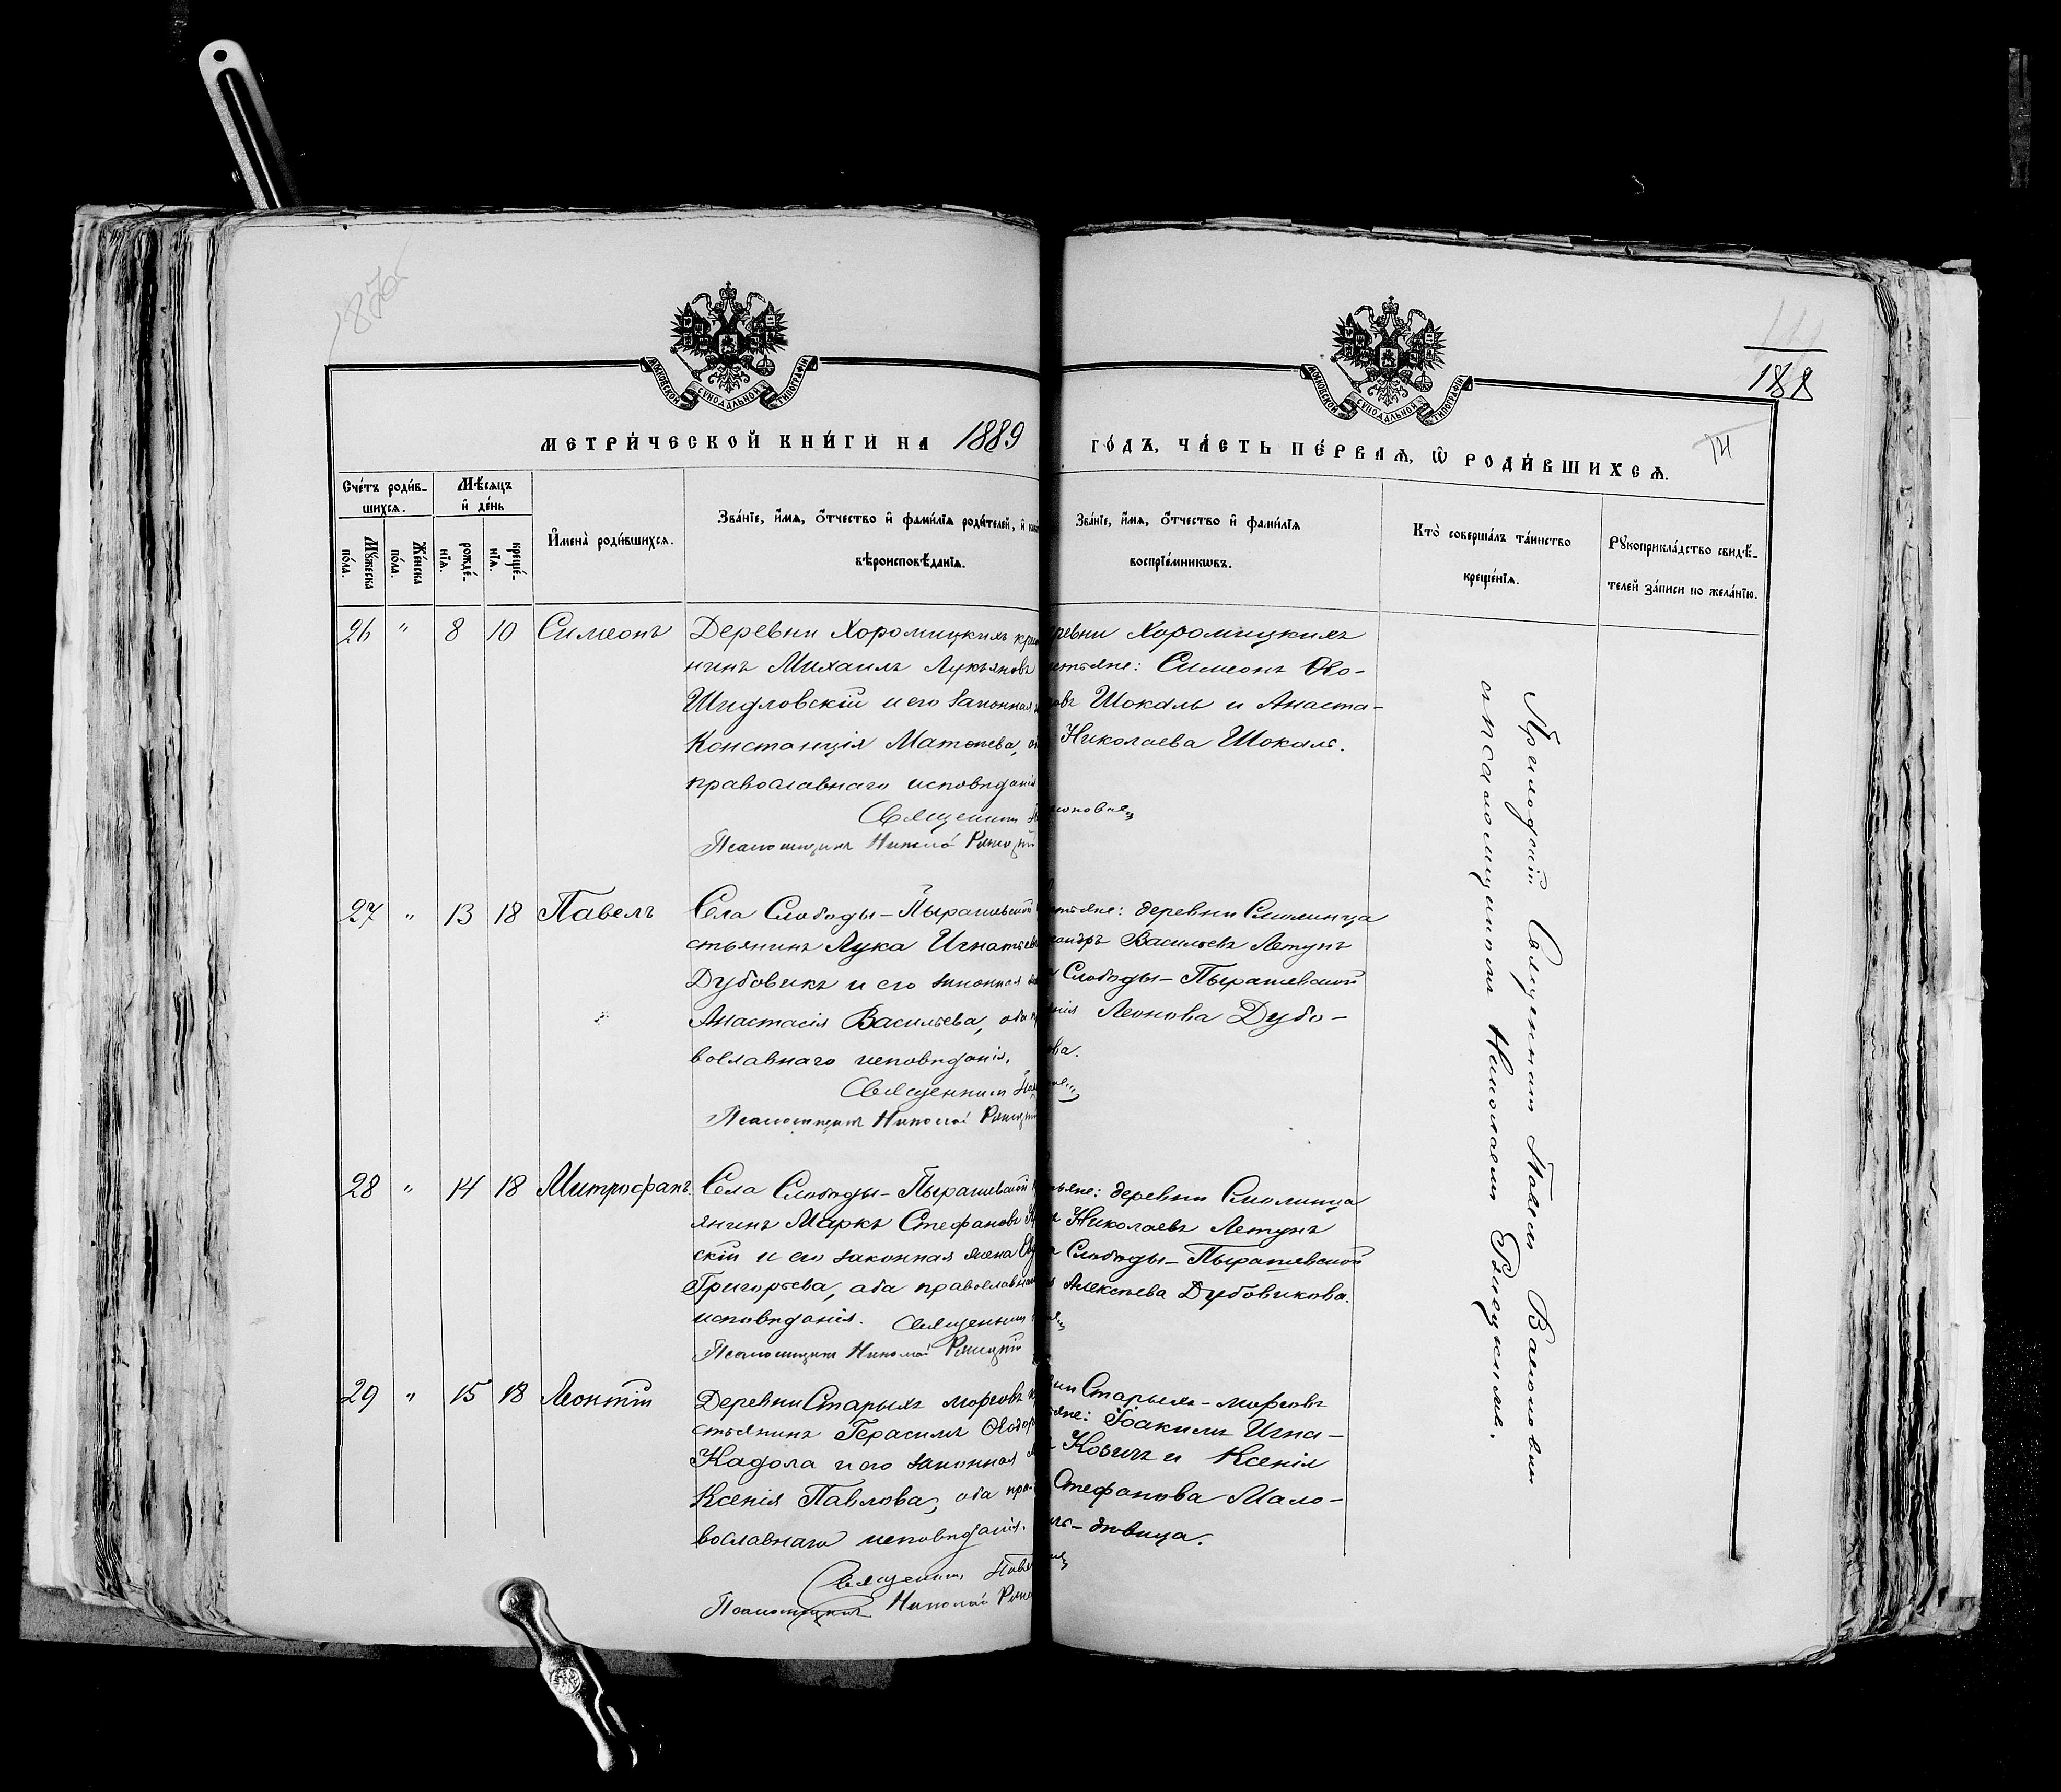 МОСКОВСКОЙ СУНОДАЛЬНОЙ ТИПОГРАФІИ
МОСКОВСКОЙ СУНОДАЛЬНОЙ ТИПОГРАФІИ
188
МЕТРИ́ЧЕСКОЙ КНИ́ГИ НА 1889
ГО́ДЪ, ЧА́СТЬ ПЕ́РВАѦ, Ѡ҆ РОДИ́ВШИХСѦ.
Сче́тъ роди́в-
шихсѧ.
Мѣ́сѧцъ
и҆ де́нь
Мꙋ́жеска
по́ла.
Же́нска
по́ла.
рожде́-
нїѧ.
креще́-
нїѧ.
И҆мена̀ роди́вшихсѧ.
Зва́нїе, и҆́мѧ, ѻ҆́тчество и҆ фами́лїѧ роди́телей, и҆
вѣроисповѣ́данїѧ.
Зва́нїе, и҆́мѧ, ѻ҆́тчество и҆ фами́лїѧ
воспрїе́мникѡвъ.
Кто̀ соверша́лъ та́инство
креще́нїѧ.
Рꙋкоприкла́дство свидѣ́-
телей за́писи по жела́нїю.
26 " 8 10 Симеонъ
Деревни Хоромицкихъ кре
нинъ Михаилъ Лукьяновъ
Шидловскій и его законная
Констанція Матѳеева,
православнаго исповѣданія
Священникъ
Псаломщикъ Николай
ревни Хоромицкихъ
стьяне: Симеонъ Ѳео-
овъ Шокаль и Анаста-
Николаева Шокаль.
27 " 13 18 Павелъ
Села Слободы-Пырашевской
стьянинъ Лука Игнатьев
Дубовикъ и его законная
Анастасія Васильева, оба
вославнаго исповѣданія.
Священникъ
Псаломщикъ Николай
стьяне: деревни Смолинца
сандръ Васильевъ Летунъ
Слободы-Пырашевской
нія Леонова Дубо-
ова.
28 " 14 18 Митрофанъ.
Села Слободы-Пырашевской
янинъ Маркъ Стефановъ
скій и его законная жена
Григорьева, оба православна
исповѣданія. Священникъ
Псаломщикъ Николай
ьяне: деревни Смолинца
Николаевъ Летунъ
Слободы-Пырашевской
Алексѣева Дубовикова.
29 " 15 18 Леонтій
Деревни Старыхъ морговъ
стьянинъ Герасимъ Ѳеодор
Кадола и его законная
Ксенія Павлова, оба пра-
вославнаго исповѣданія.
Священникъ Паве
Псаломщикъ Николай
ни Старыхъ-морговъ
яне: Іоакимъ Игна-
Козичъ и Ксенія
Стефанова Мало-
ль-дѣвица.
Приходскій Священникъ Павелъ
съ псаломщикомъ Николаемъ